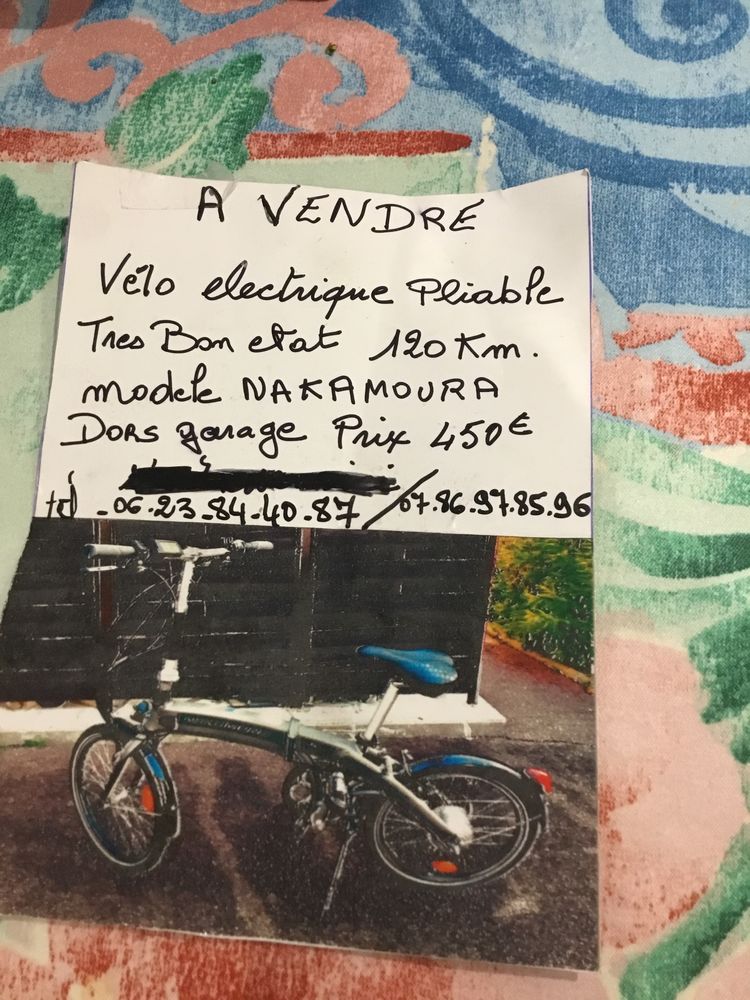 A VENDRE
Vélo electrique Pliable
Tres Bon etat 120 Km.
modele NAKAMOURA
DORS garage Prix 450€
tel -06.23.84.40.87 / 07.86.97.85.96